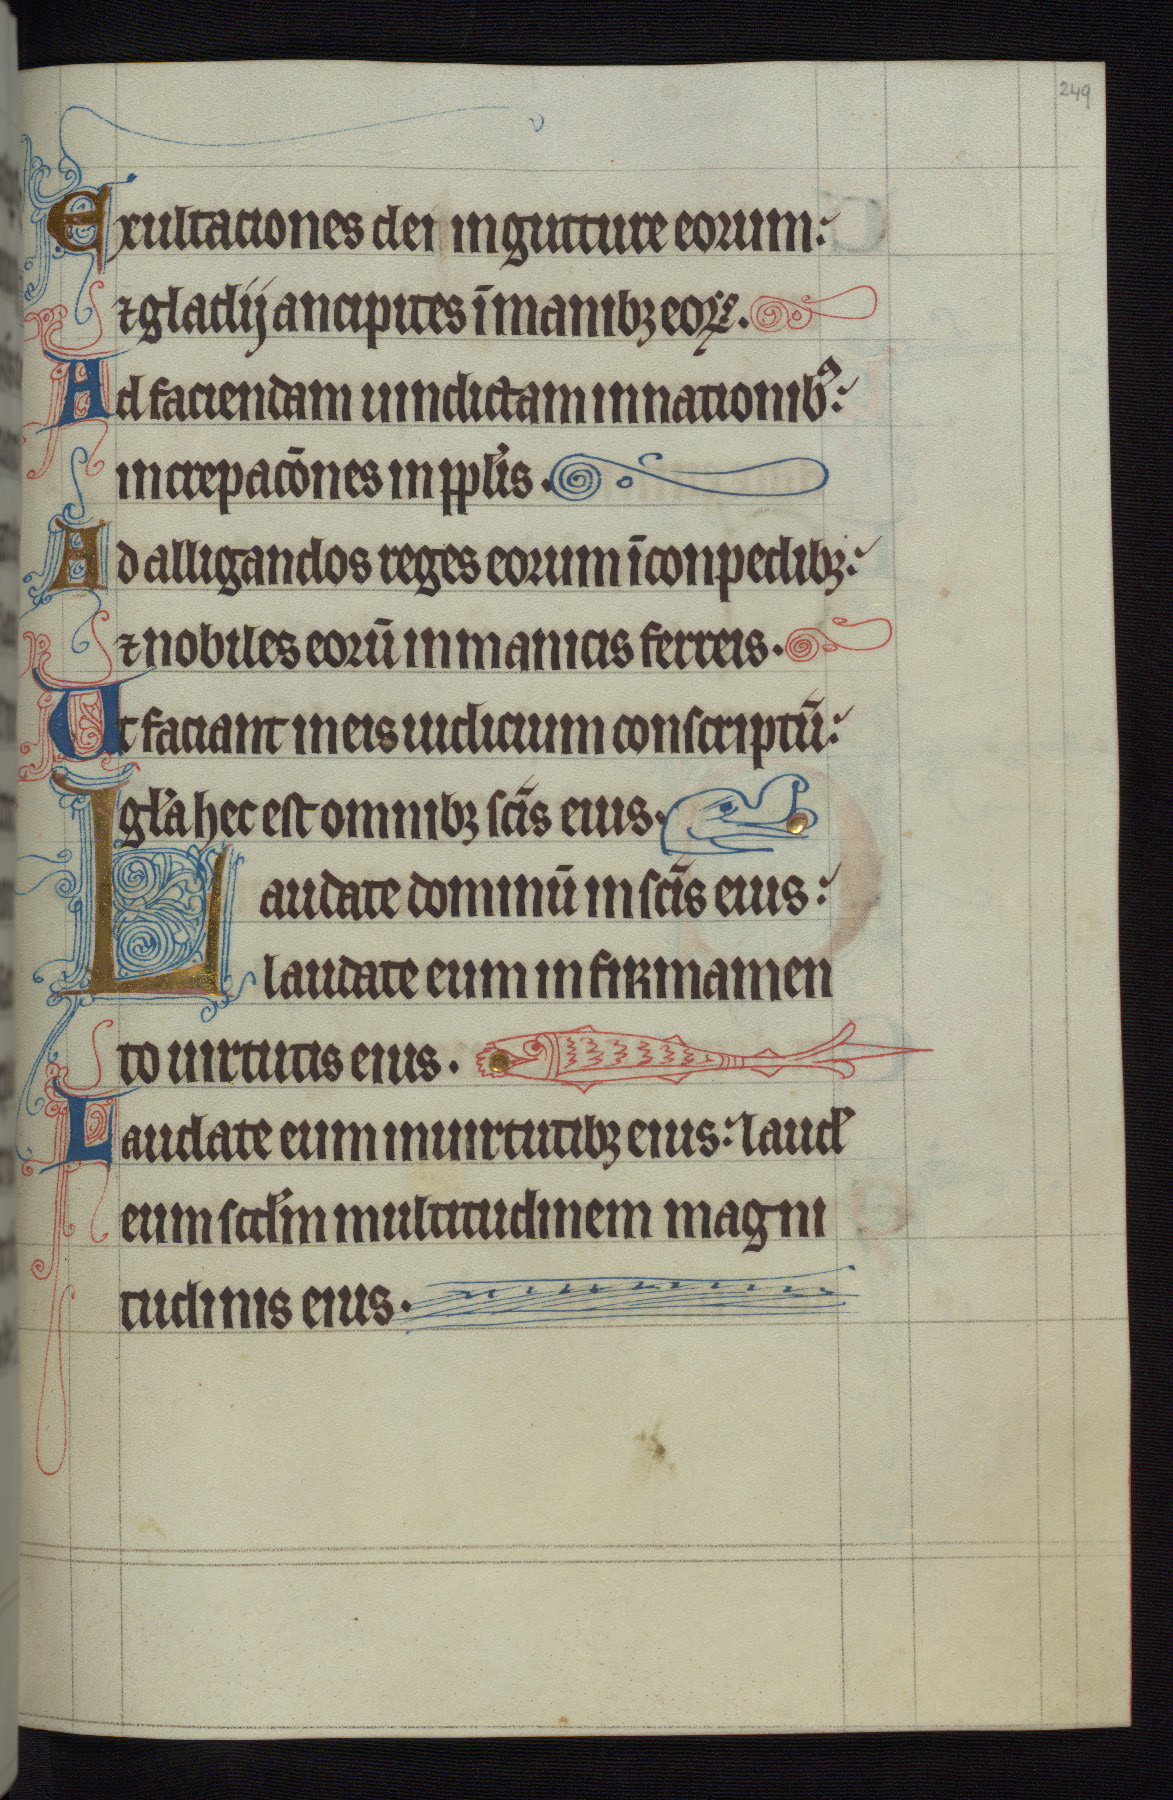 249
Exultaciones dei in gutture eorum:
⁊ gladij ancipites ī manibꝫ eoꝝ.
Ad faciendam uindictam in nationibꝰ:
increpacōnes in ppl̓is.
Ad alligandos reges eorum ī conpedibꝫ:
⁊ nobiles eorū in manicis ferreis.
Ut faciant in eis iudicium conscriptū:
gl̓a hec est omnibꝫ sc̄is eius.
Laudate dominū in sc̄is eius:
laudate eum in firmamen
to uirtutis eius.
Laudate eum in uirtutibꝫ eius: laud̓
eum scd̓m multitudinem magni
tudinis eius.